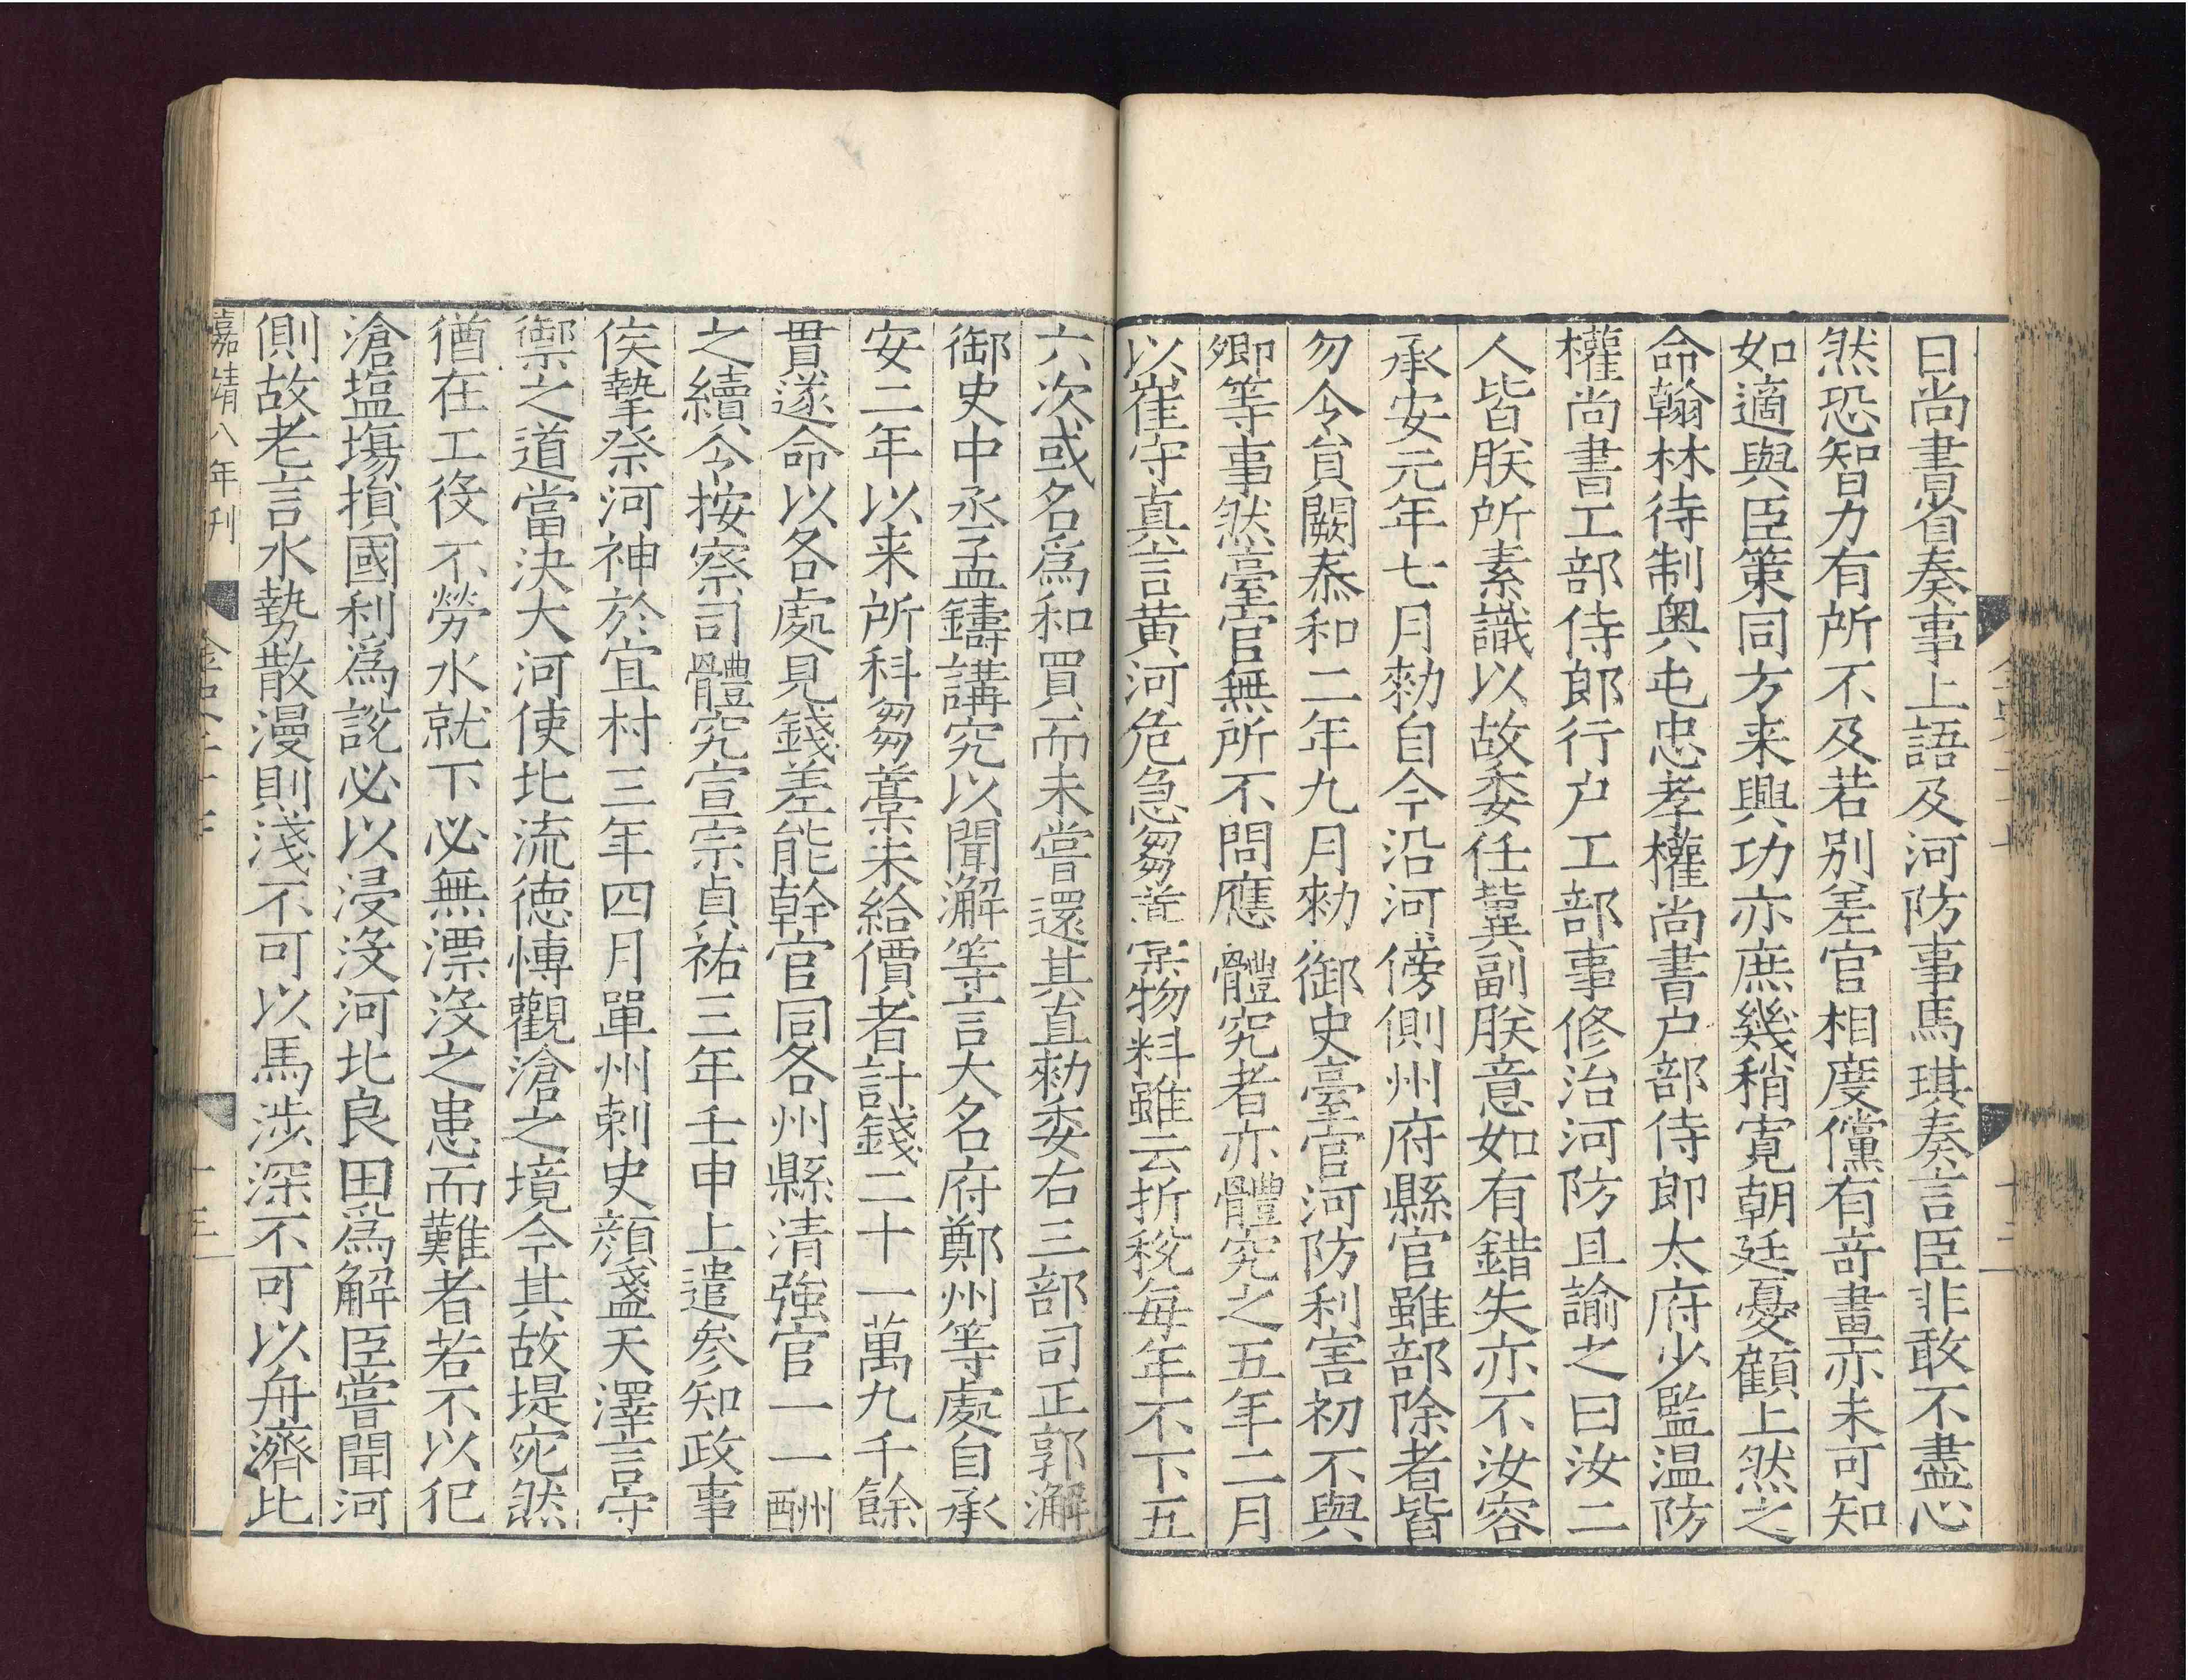 曰尚書省奏事上語及河防事馬琪奏言臣非敢不盡心
然恐智力有所不及若别差官相度儻有竒畫亦未可知
如適與臣策同方来興功亦庶幾稍寛朝廷憂顧上然之
命翰林待制奥屯忠孝權尚書户部侍郎太府少監温昉
權尚書工部侍郎行户工部事修治河防且諭之曰汝二
人皆朕所素識以故委任冀副朕意如有錯失亦不汝容
承安元年七月勑自今沿河傍側州府縣官雖部除者皆
勿令員闕泰和二年九月勑御史臺官河防利害初不與
卿等事然臺官無所不問應體究者亦體究之五年二月
以崔守真言黄河危急芻藁物料雖云折稅每年不下五
六次或名爲和買而未嘗還其直勑委右三部司正郭澥
御史中丞孟鑄講究以聞澥等言大名府鄭州等處自承
安二年以来所科芻藁未給價者計錢二十一萬九千餘
貫遂命以各處見錢差能幹官同各州縣清強官一一酬
之續令按察司體究宣宗貞祐三年壬申上遣參知政事
侯摯祭河神於宜村三年四月單州刺史顔盞天澤言守
禦之道當決大河使北流德博觀滄之境今其故堤宛然
猶在工役不勞水就下必無漂没之患而難者若不以犯
滄塩塲損國利爲說必以浸没河北良田爲解臣嘗聞河
側故老言水勢散漫則淺不可以馬涉深不可以舟濟此
嘉靖八年刊
十三